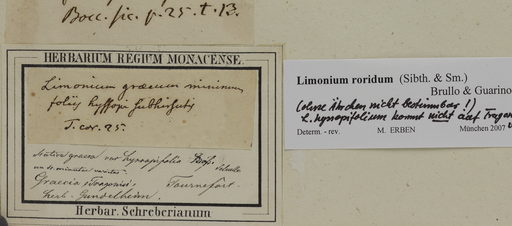 Bocc. sic. p. 25. t. 13.
HERBARIUM REGIUM MONACENSE.
Limonium graecum minimum
foliis hyssopi
T. cor. 25.
Statice graeca var. hyssopifolia Boiss.
Graecia,
Tournefort.
herb. Gundelheim.
Herbar. Schreberianum
Limonium roridum (Sibth. & Sm.)
Brullo & Guarino
(ohne Ährchen nicht bestimmbar!)
L. hyssopifolium kommt nicht auf
Determ. - rev. M. ERBEN München 2007